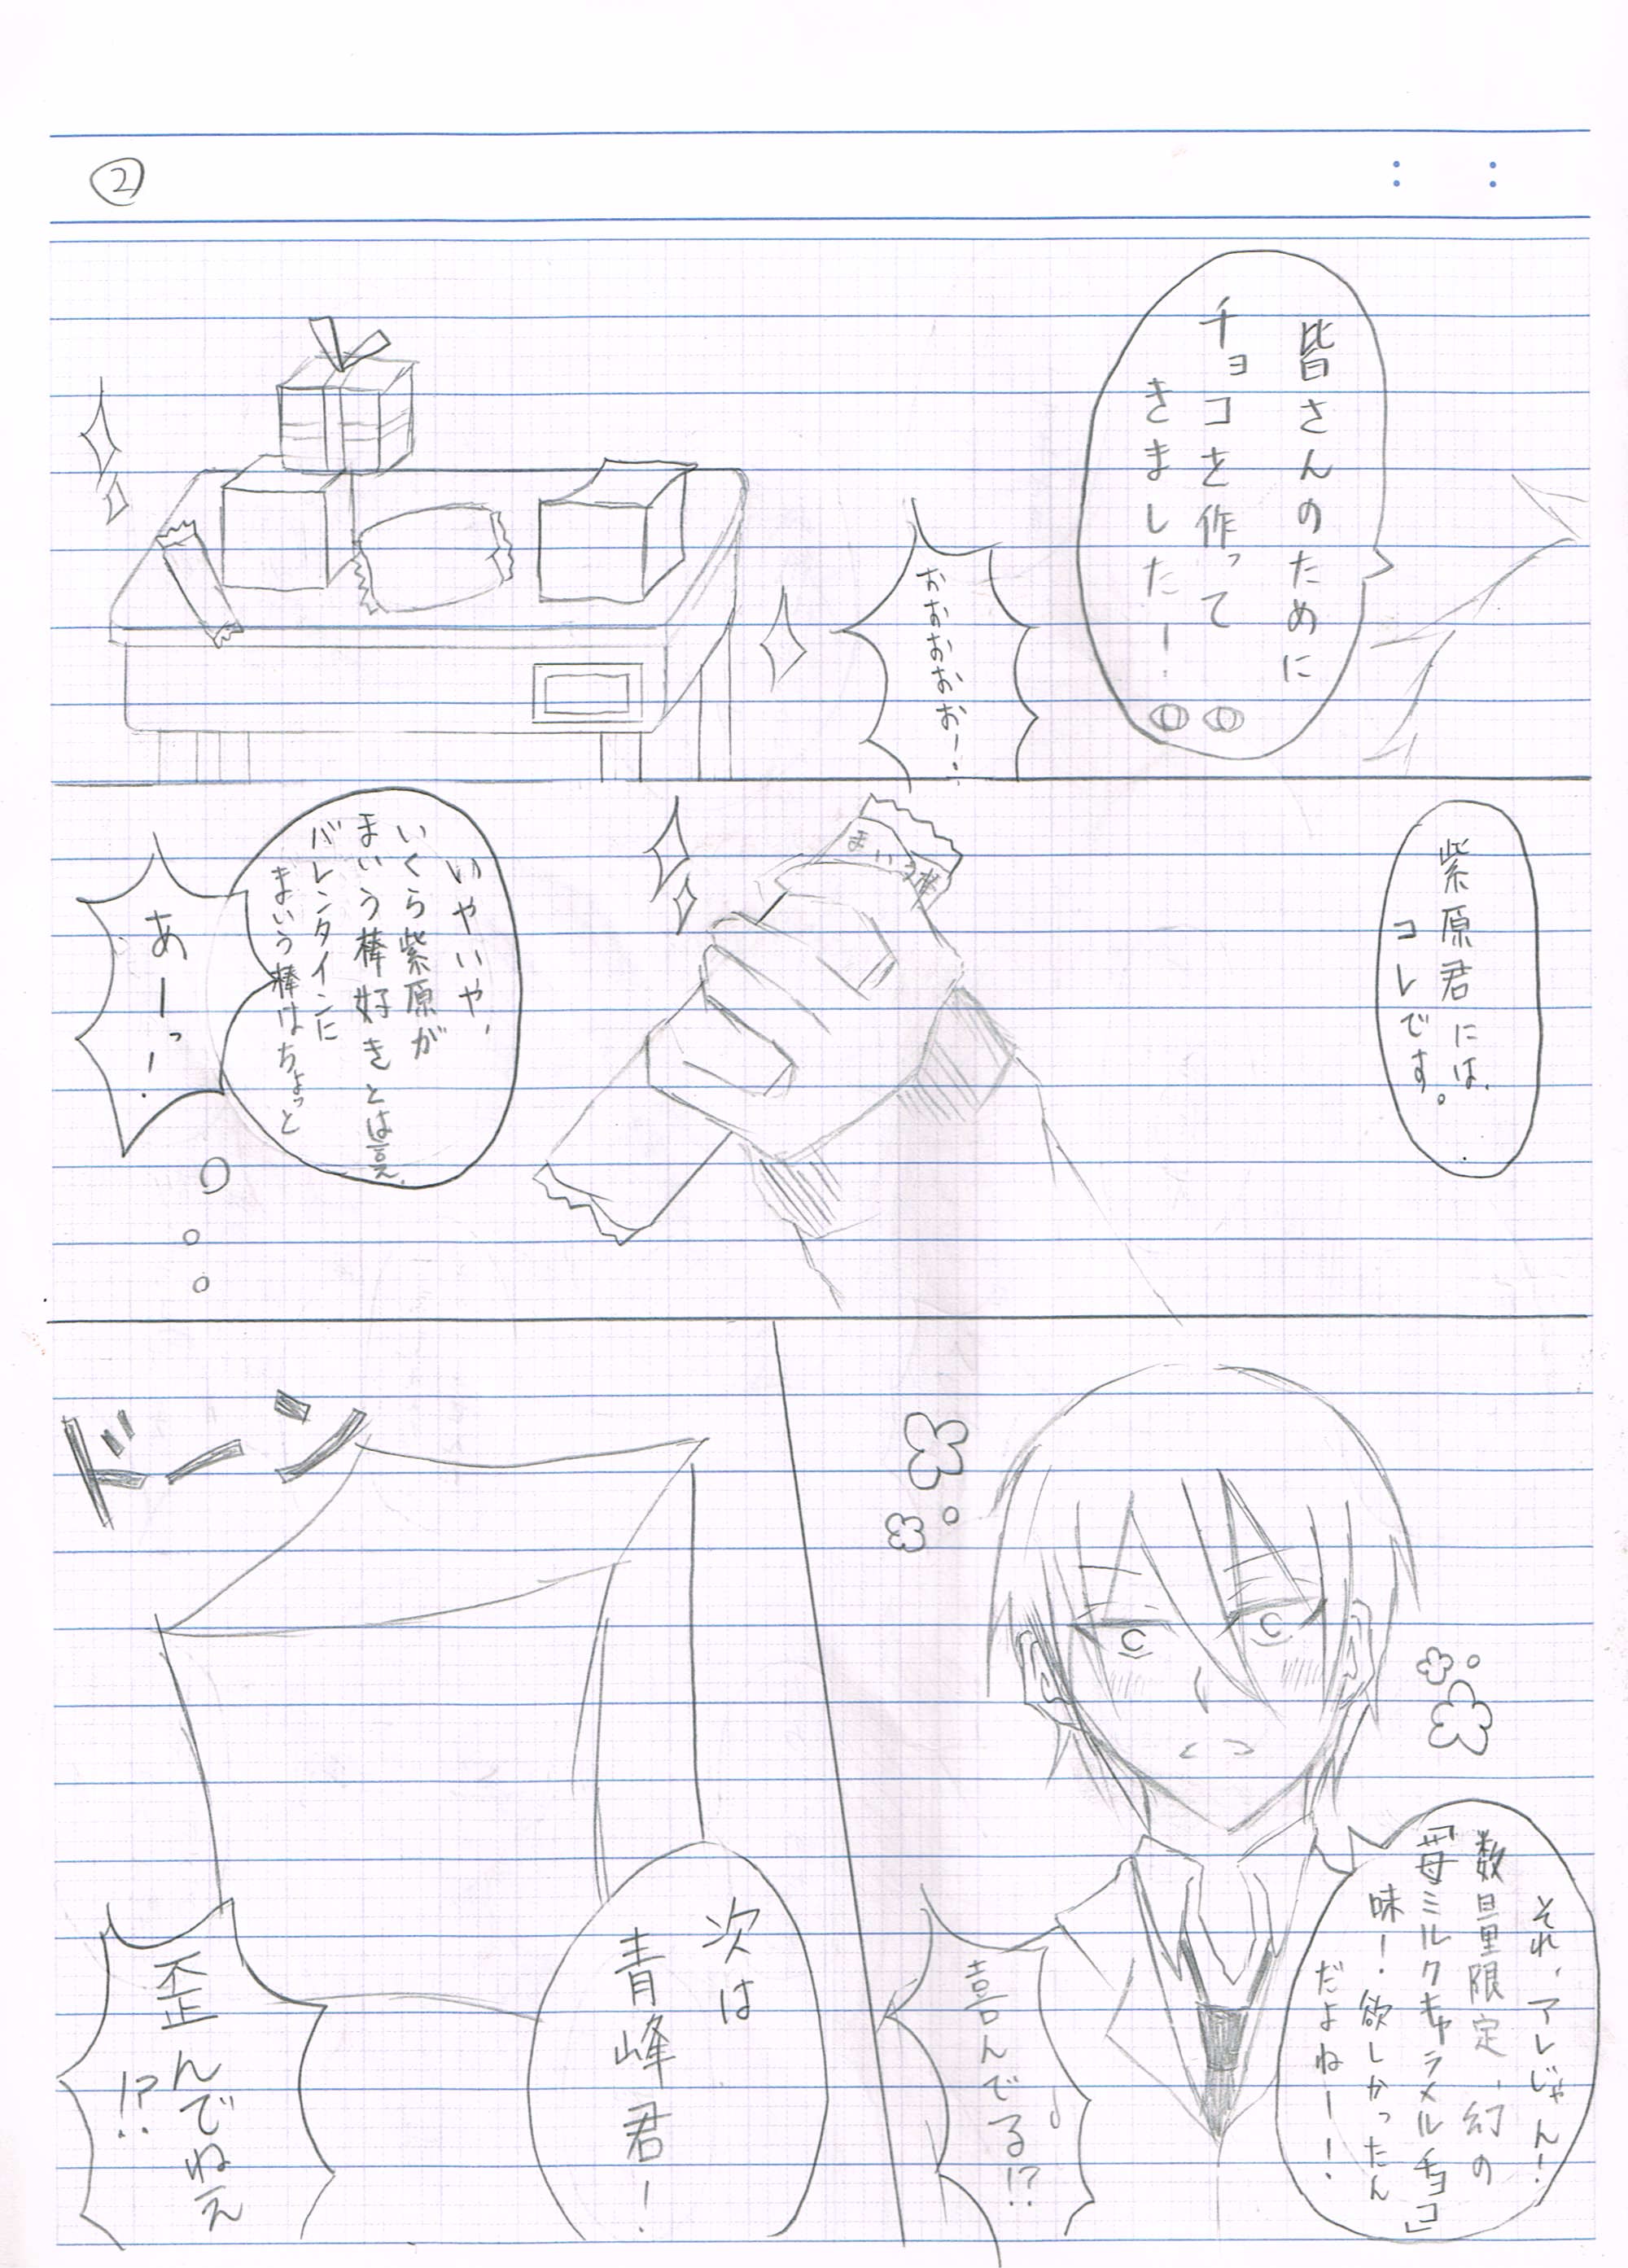 ②
皆さんのために
チョコを作って
きました！
おおおおお！
紫原君には、
コレです。
まいう棒
いやいや、
いくら紫原が
まいう棒好きとは言え、
バレンタインに
まいう棒はちょっと
あーっ！
それ、アレじゃん！
数量限定、幻の
「苺ミルクキャラメルチョコ」
味！欲しかったん
だよねー！
喜んでる!?
ドーン
次は
青峰君！
歪んでねえ
!?